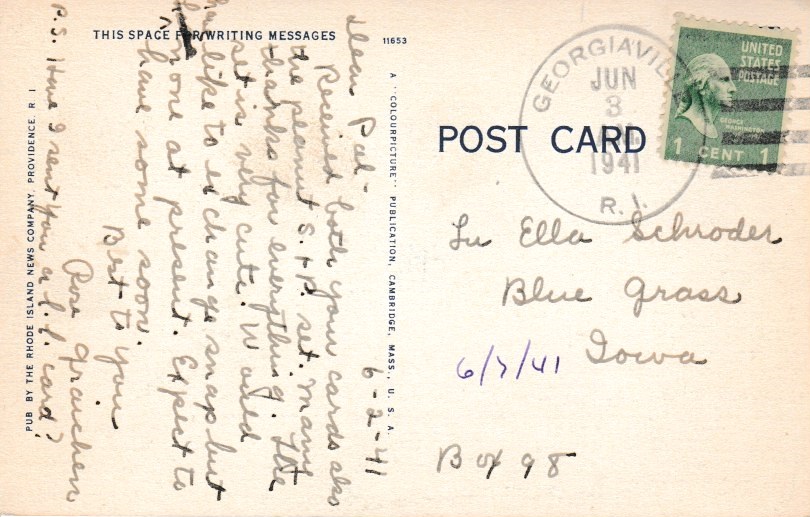 THIS SPACE FOR WRITING MESSAGES
11653
6-2-41
Dear Pal-
Received both your cards also
the peanut S.+P. set. Many
thanks for everything. The
set is very cute. Would
like to exchange snap but
none at present. Expect to
have some soon.
Best to you
Rose Graichen
P.S. Have I sent you a l.l. card?
PUB BY THE RHODE ISLAND NEWS COMPANY, PROVIDENCE, R I
A "COLOURPICTURE" PUBLICATION, CAMBRIDGE, MASS., U. S. A.
POST CARD
GEORGIAVIL
JUN
3
A.M.
1941
R. I.
UNITED
STATES
POSTAGE
GEORGE
WASHINGTON
1 CENT 1
Lu Ella Schroder
Blue Grass
Iowa
6/7/41
Box 98